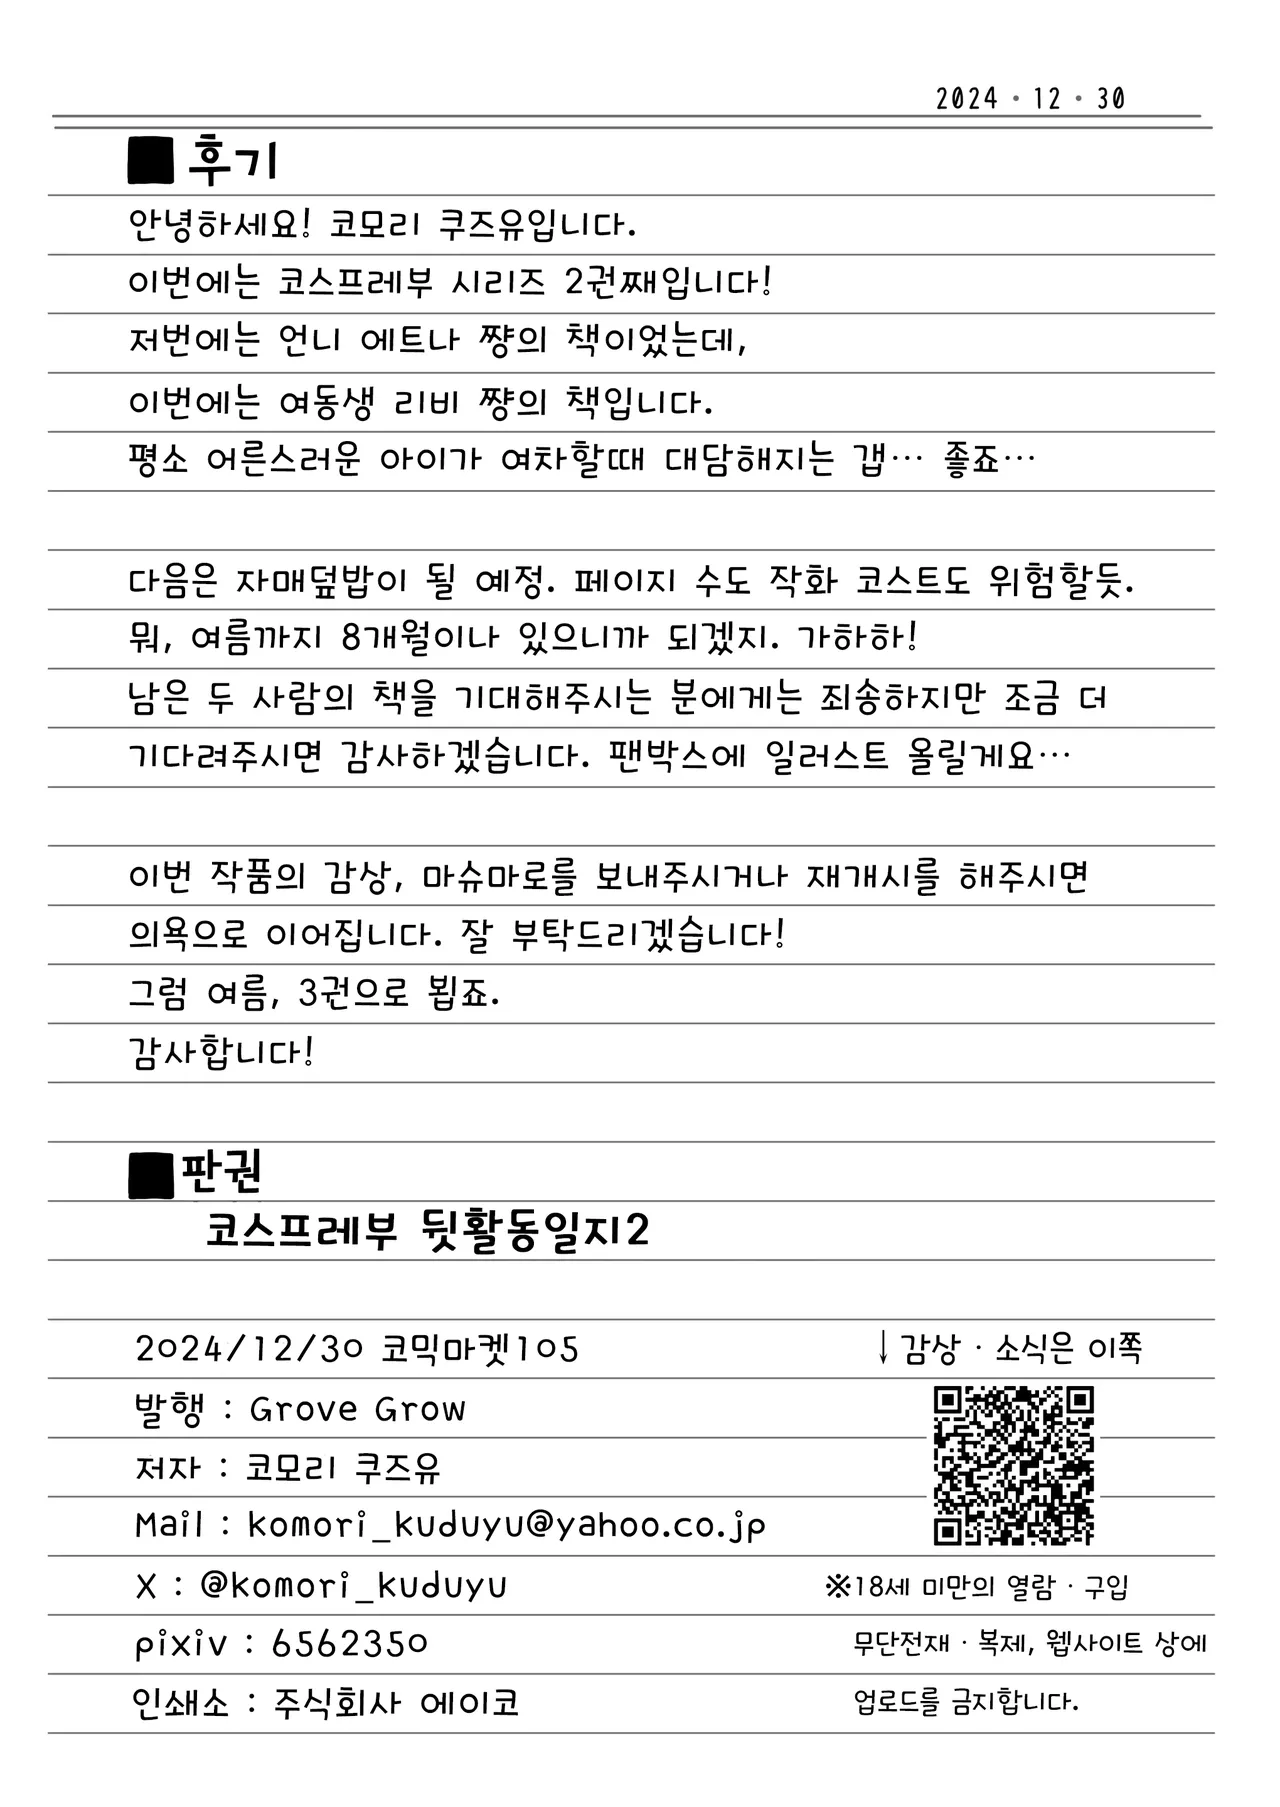 2024・12・30
■후기
안녕하세요! 코모리 쿠즈유입니다.
이번에는 코스프레부 시리즈 2권째입니다!
저번에는 언니 에트나 쨩의 책이었는데,
이번에는 여동생 리비 쨩의 책입니다.
평소 어른스러운 아이가 여차할때 대담해지는 갭… 좋죠…
다음은 자매덮밥이 될 예정. 페이지 수도 작화 코스트도 위험할듯.
뭐, 여름까지 8개월이나 있으니까 되겠지. 가하하!
남은 두 사람의 책을 기대해주시는 분에게는 죄송하지만 조금 더
기다려주시면 감사하겠습니다. 팬박스에 일러스트 올릴게요…
이번 작품의 감상, 마슈마로를 보내주시거나 재개시를 해주시면
의욕으로 이어집니다. 잘 부탁드리겠습니다!
그럼 여름, 3권으로 뵙죠.
감사합니다!
■판권
코스프레부 뒷활동일지2
2024/12/30 코믹마켓105
발행 : Grove Grow
저자 : 코모리 쿠즈유
Mail : komori_kuduyu@yahoo.co.jp
X : @komori_kuduyu
pixiv : 6562350
인쇄소 : 주식회사 에이코
↓감상・소식은 이쪽
※18세 미만의 열람・구입
무단전재・복제, 웹사이트 상에
업로드를 금지합니다.